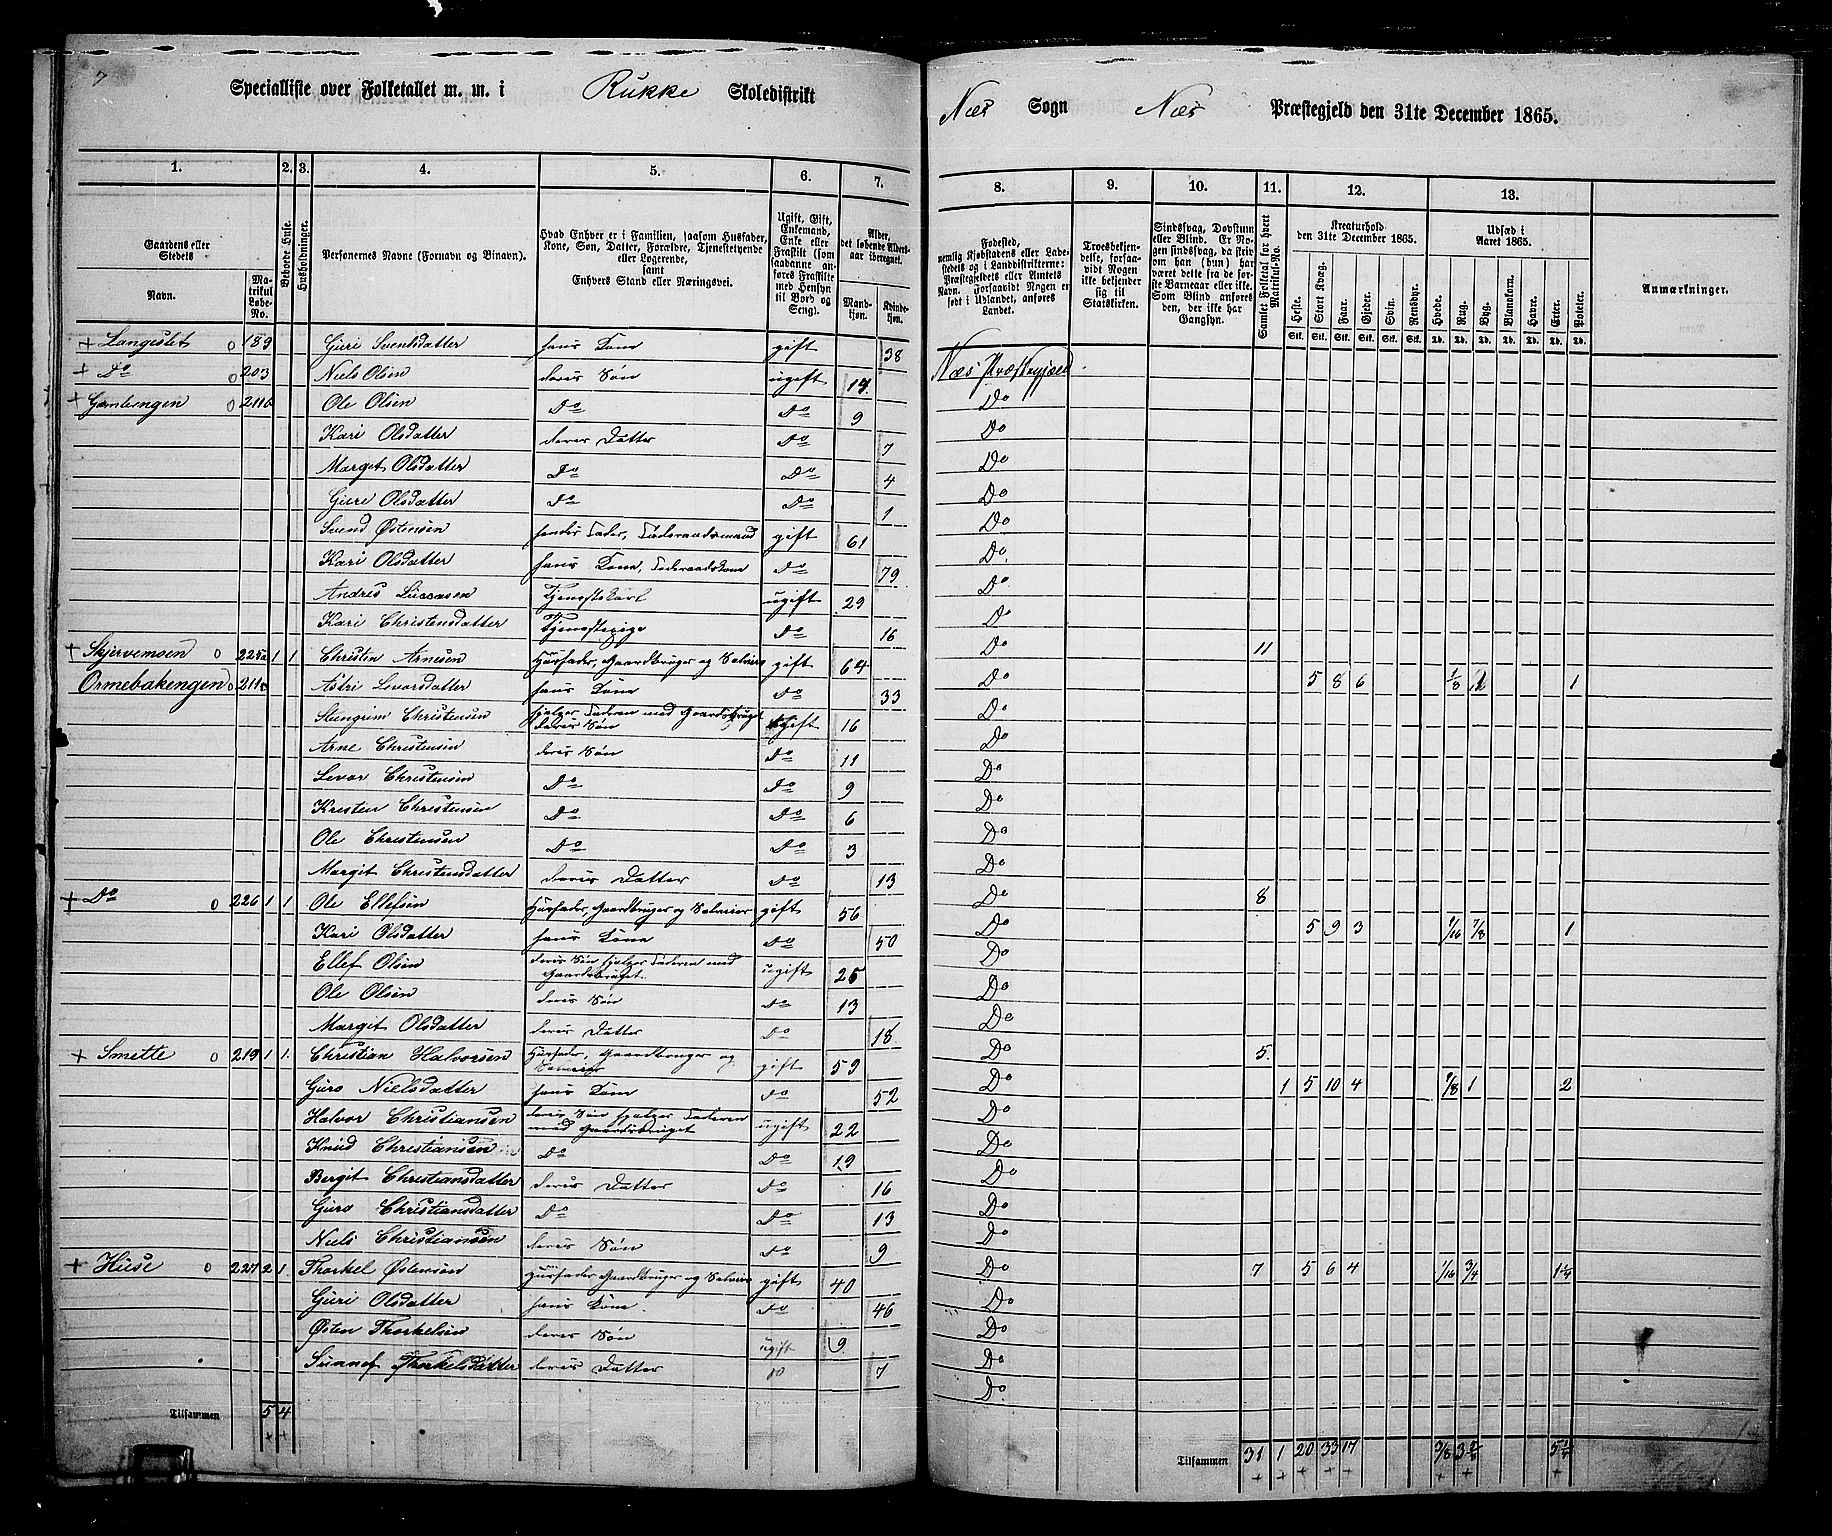 7
Specialliste over Folketallet m. m. i Rukke Skoledistrikt Næs Sogn Næs Præstegjeld den 31te December 1865.
1. 2. 3. 4. 5. 6. 7. 8. 9. 10. 11. 12. 13.
Gaardens eller Stedets
Navn.
Matrikul Løbe-No.
Beboede Huse.
Husholdninger.
Personernes Navne (Fornavn og Binavn).
Hvad Enhver er i Familien, saasom Husfader, Kone, Søn, Datter, Forældre, Tjenestetyende eller Logerende,
samt
Enhvers Stand eller Næringsvei.
Ugift, Gift, Enkemand, Enke eller Fraskilt (som saadanne anføres Fraskilte med Hensyn til Bord og Seng).
Alder, det løbende Aldersaar iberegnet.
Mandkjøn.
Kvindekjøn.
Fødested, nemlig Kjøbstadens eller Ladestedets og i Landdistrikterne: Præstegjeldets eller Amtets Navn. Forsaavidt Nogen er født i Udlandet, anføres Landet.
Troesbekjendelse, forsaavidt Nogen ikke bekjender sig til Statskirken.
Sindssvag, Døvstum eller Blind. Er Nogen sindssvag, da skrives om han (hun) har været dette fra de første Barneaar eller ikke. Som Blind anføres den, der ikke har Gangsyn.
Samlet Folketal for hvert Matrikul-No.
Kreaturhold den 31te December 1865.
Heste. Stort Kvæg. Faar. Gjeder. Svin. Rensdyr.
Stk. Stk. Stk. Stk. Stk. Stk.
Udsæd i Aaret 1865.
Hvede. Rug. Byg. Blandkorn. Havre. Erter. Poteter.
Td. Td. Td. Td. Td. Td. Td.
Anmærkninger.
+ Langeslet o 189 Guri Svendsdatter hans Kone gift 38 Næs Præstegjeld
+ Do o 203 Niels Olsen deres Søn ugift 14 Do
+ o 211b Ole Olsen Do Do 9 Do
Kari Olsdatter deres Datter Do 7 Do
Margit Olsdatter Do Do 4 Do
Gure Olsdatter Do Do 1 Do
Svend Østensen hendes Fader, Føderaadsmand gift 61 Do
Kari Olsdatter hans Kone, Føderaadskone Do 79 Do
Andres Tjenestekarl ugift 29 Do
Kari Christensdatter Tjenestepige Do 16 Do
+ Skjervemoen o 225a 1 1 Christen Arnesen Husfader, Gaardbruger og Selveier gift 64 Do 11 5 8 6 1/8 1
Ormebakengen o Astri Levorsdatter hans Kone Do 33 Do
Stengrim Christensen hjælper Faderen med Gaardsbruget deres Søn ugift 16 Do
Arne Christensen deres Søn Do 11 Do
Levor Christensen Do Do 9 Do
Kresten Christensen Do Do 6 Do
Ole Christensen Do Do 3 Do
Margit Christensdatter deres Datter Do 13 Do
+ Do o 226 1 1 Ole Ellefsen Husfader, Gaardbruger og Selveier gift 56 Do 8 5 9 3 1/16 7/8 1
Kari Olsdatter hans Kone Do 50 Do
Ellef Olsen deres Søn hjelper Faderen med Gaardsbruget. ugift 25 Do
Ole Olsen deres Søn Do 13 Do
Margit Olsdatter deres Datter Do 18 Do
+ Smette o 219 1 1. Christian Halvorsen Husfader, Gaardbruger og Selveier gift 59 Do 5. 1 5 10 4 1/8 1 2
Guro Nielsdatter hans Kone Do 52 Do
Halvor Christiansen deres Søn hjelper Faderen med Gaardsbruget ugift 22 Do
Knud Christiansen Do Do 19 Do
Bergit Christiansdatter deres Datter Do 16 Do
Guro Christiansdatter Do Do 13 Do
Niels Christiansen deres Søn Do 9 Do
+ Huse o 227 2 1. Thorkel Østensen Husfader, Gaardbruger og Selveier gift 40 Do 7 5 6 4 1/16 3/4 1 1/4
Guri Olsdatter hans Kone. Do 46 Do
Østen Thorkelsen deres Søn ugift 9 Do
Sunnef Thorkelsdatter deres Datter Do 7 Do
Do
Tilsammen 5 4
+ +
Tilsammen 31 1 20 33 17 3/8 5 1/4
+ + + + + + + +